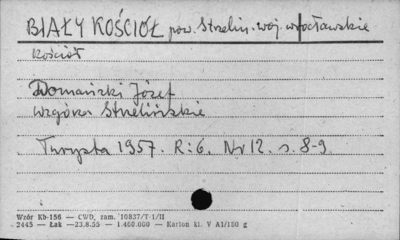 BIAŁY KOŚCIÓŁ pow. Strzelin. woj. wrocławskie
Kościół
Domański Józef
Wzgórza Strzelińskie
Turysta 1957. R:6. Nr 12. s. 8-9.
Wzór Kb-156 — CWD, zam. 10837/T-1/II
2445 — Łak —23.8.55 — 1.400.000 — Karton kl. V A1/180 g